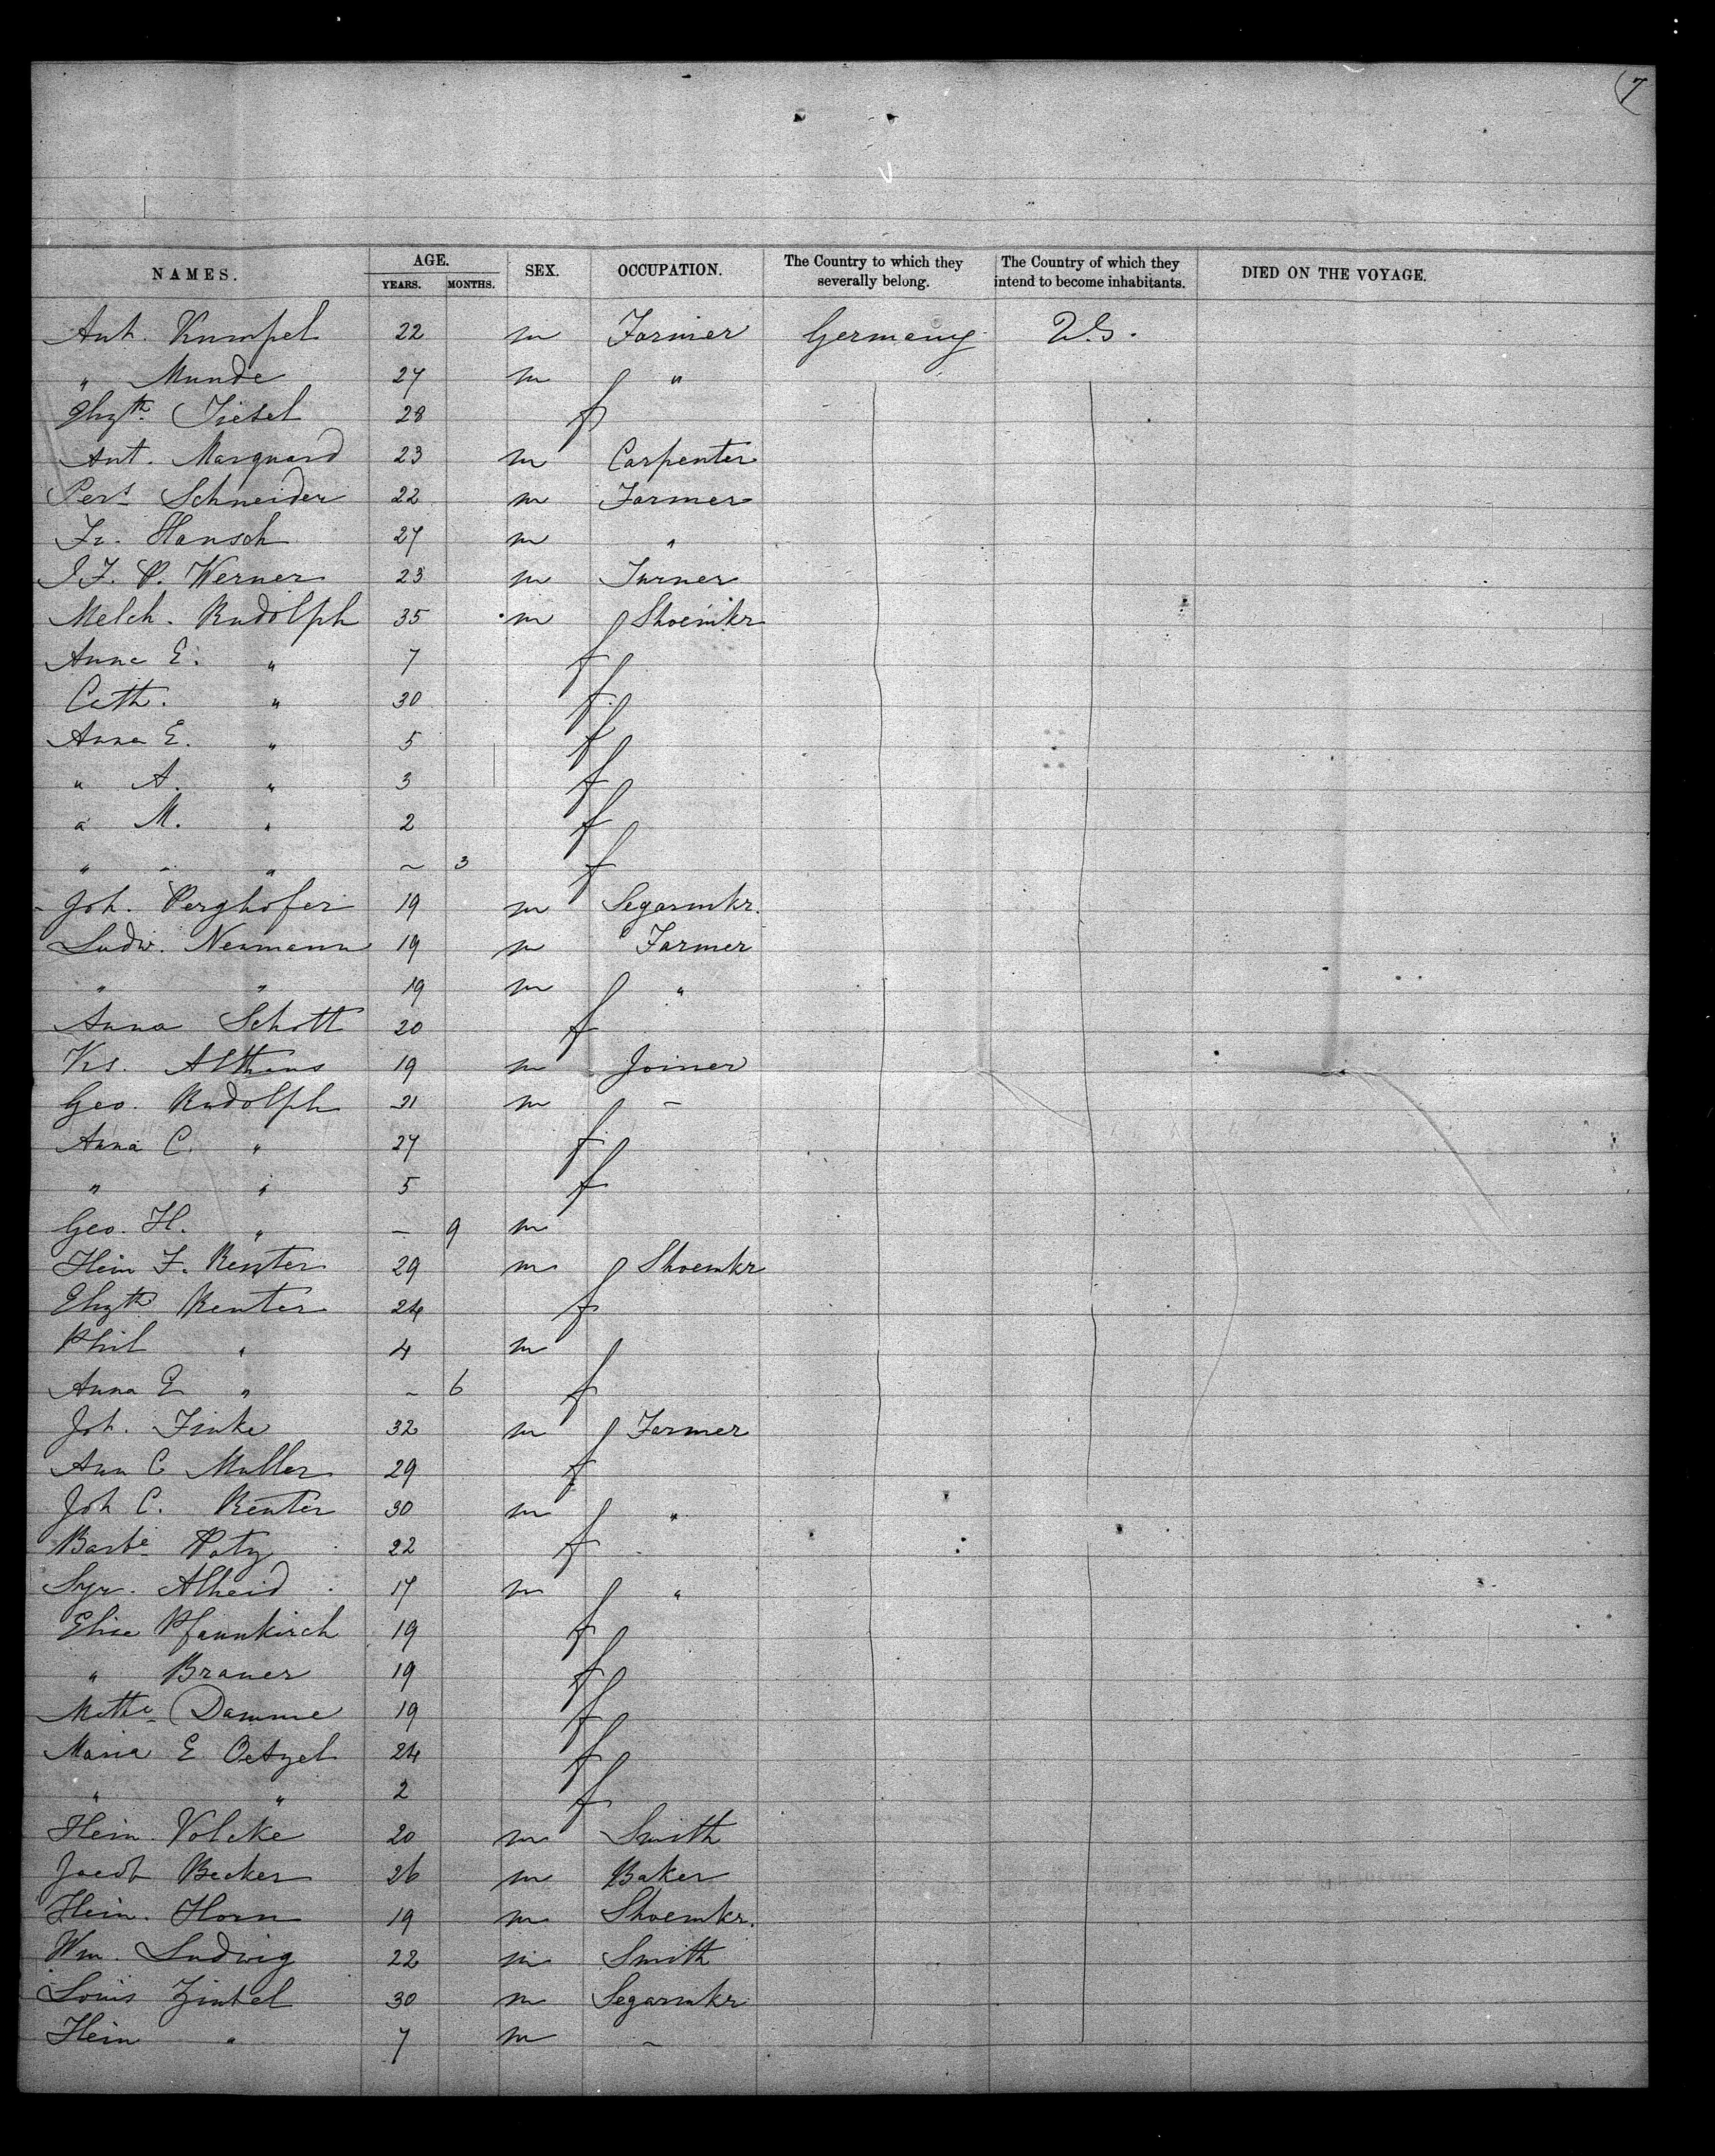 7
NAMES. AGE. YEARS. MONTHS. SEX. OCCUPATION. The Country to which they severally belong. The Country of which they intend to become inhabitants. DIED ON THE VOYAGE.
Ant. Kumpel 22 m Farmer Germany U.S.
" Munde 27 m "
Elizth. 28 f
Ant. Marquard 23 m Carpenter
Schneider 22 m Farmer
Fr. Hansch 27 m "
J. F. P. Werner 23 m Turner
Melch. Rudolph 35 m Shoemkr
Anna E. " 7 f
Cath. " 30 f
Anna E. " 5 f
" A. " 3 f
" M. " 2 f
" - " ~ 3 f
Joh. Perghofer 19 m Segarmkr.
Ludw. Neumann 19 m Farmer
" " 19 m "
Anna Schott 20 f
Althans 19 m Joiner
Geo. Rudolph 31 m -
Anna C. " 27 f
" " 5 f
Geo. H. " - 9 m
Hein F. Reuter 29 m Shoemkr
Elizth Reuter 24 f
Phil " 4 m
Anna E " ~ 6 f
Joh. Finke 32 m Farmer
Ann C Muller 29 f
Joh C. Reuter 30 m "
Barbe Potz 22 f
Alheid 17 m "
Elise Pfannkirch 19 f
" Brauer 19 f
Damme 19 f
Maria E Oetzel 24 f
" " 2 f
Hein. Volcke 20 m Smith
Jacob Becker 26 m Baker
Hein. Horn 19 m Shoemkr.
Wm. Ludwig 22 m Smith
Louis Zintel 30 m Segarmkr
Hein " 7 m ~